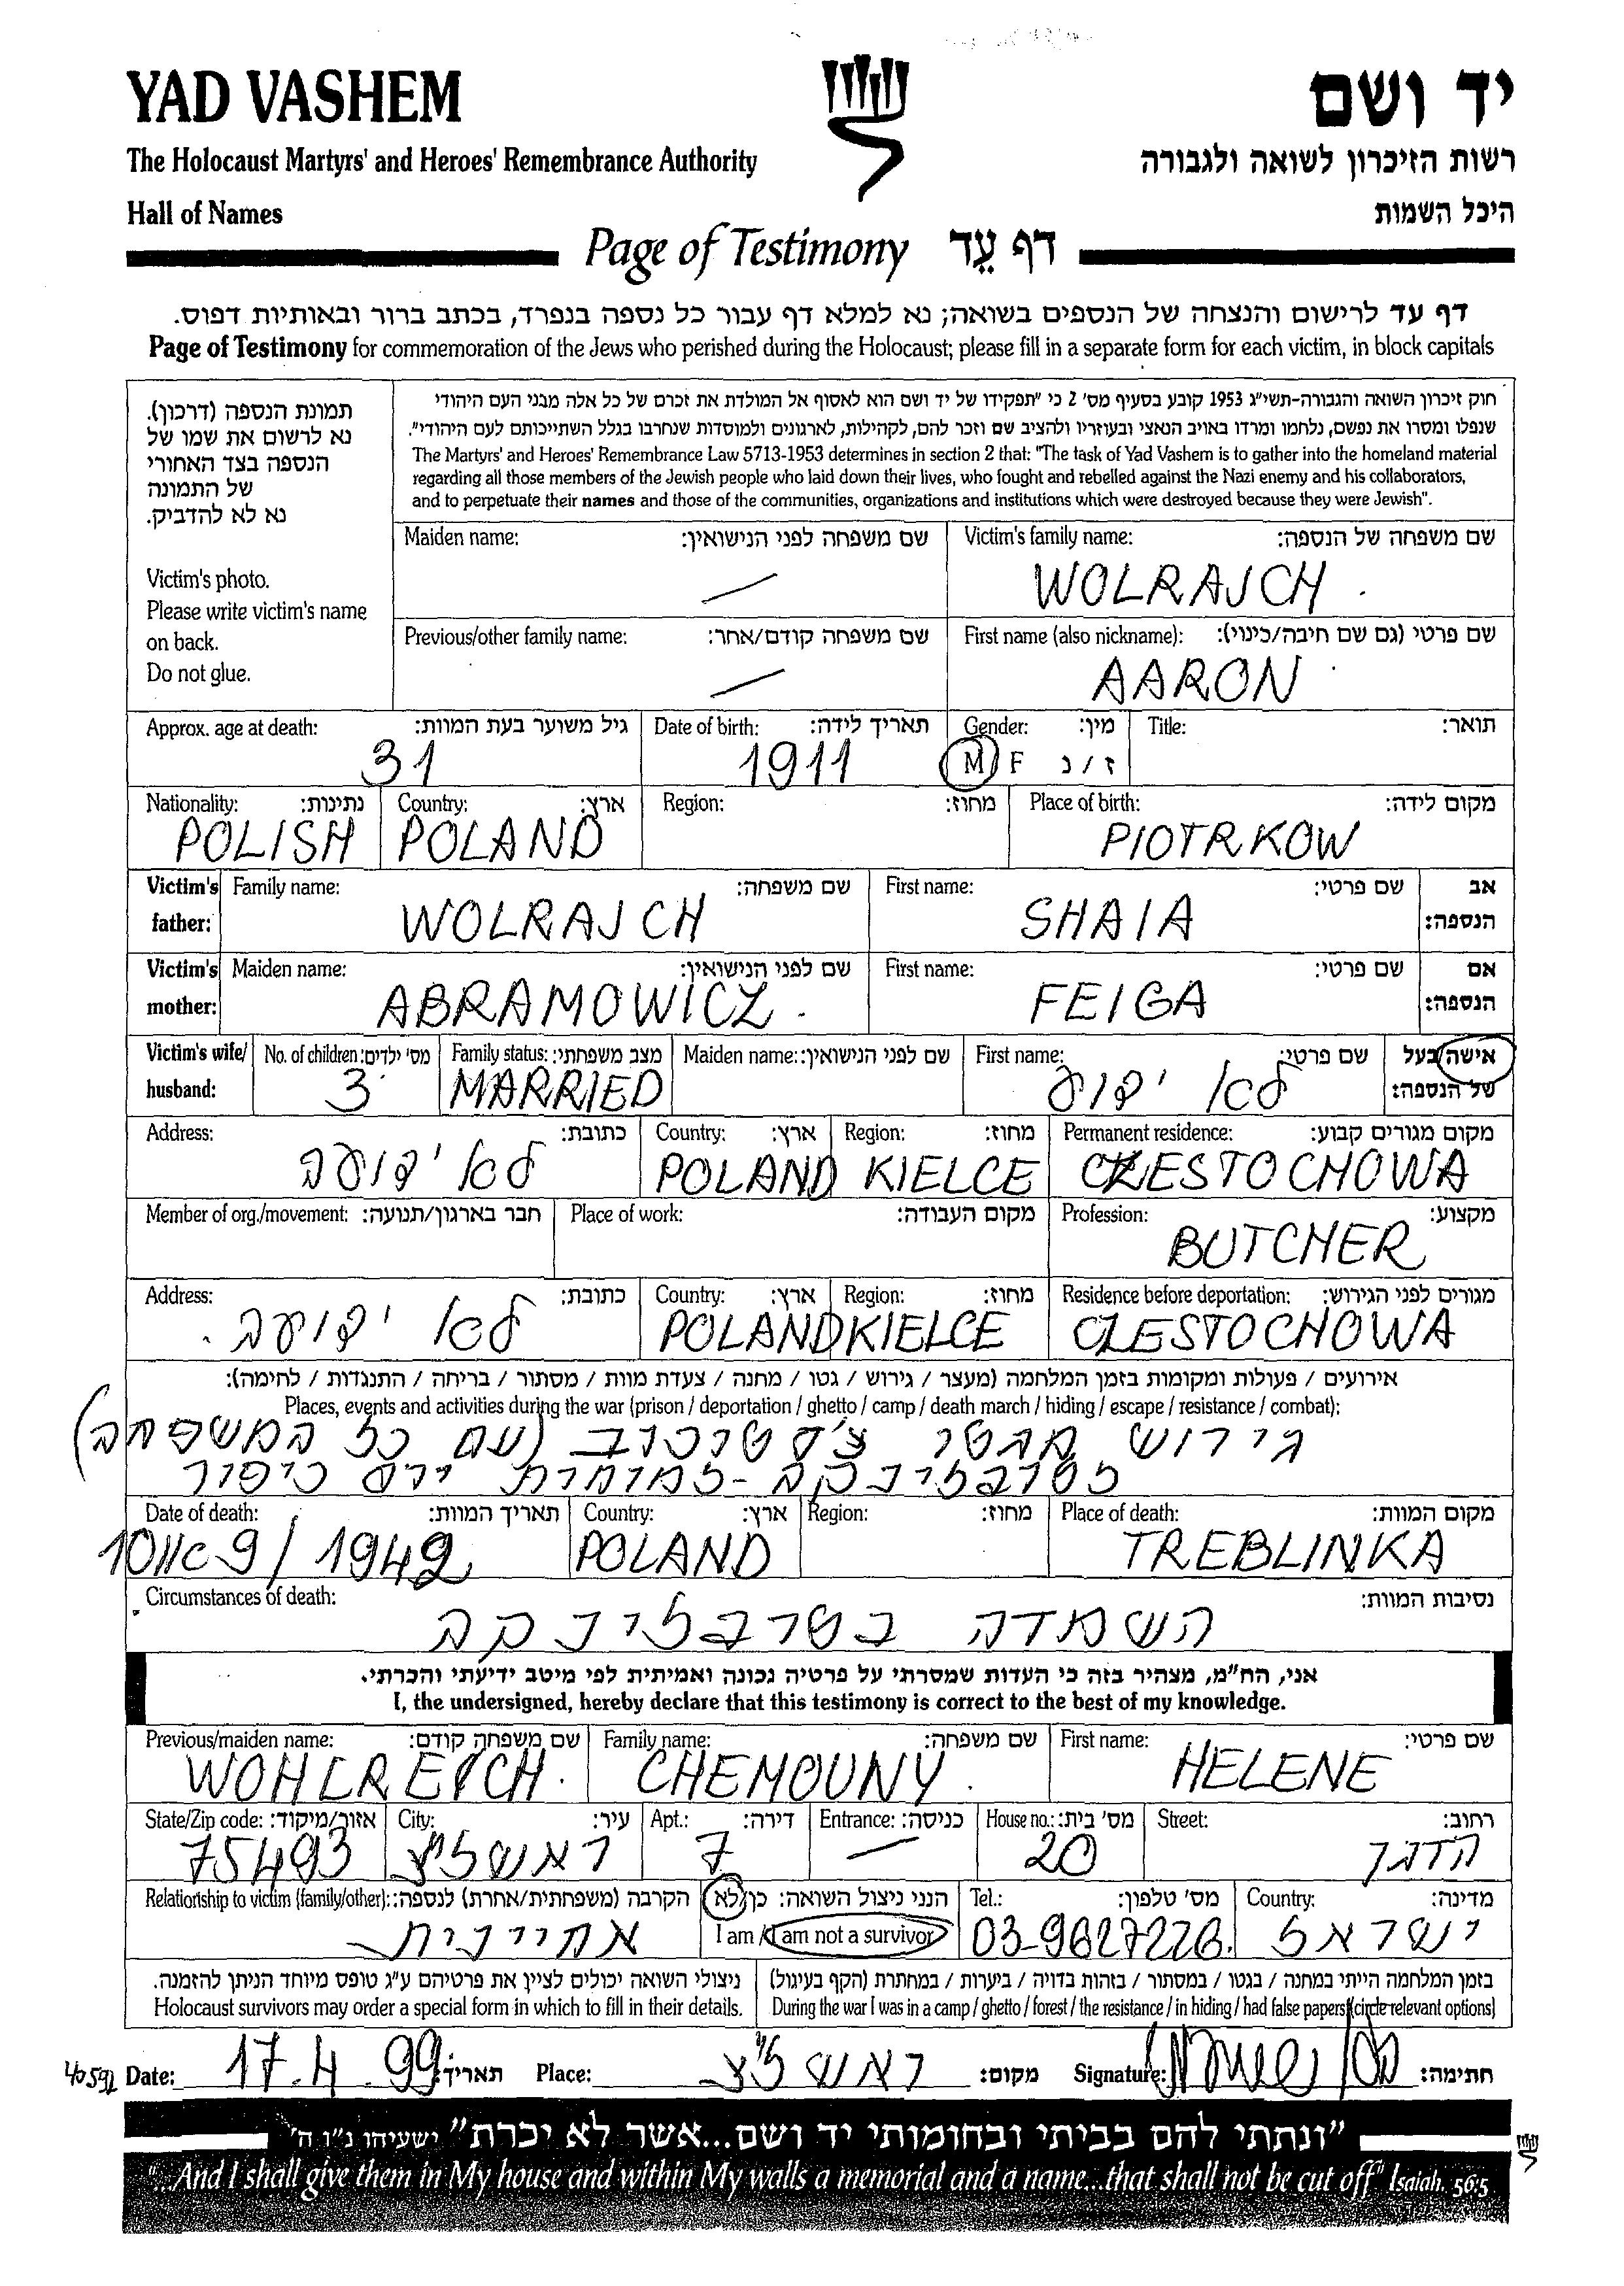 YAD VASHEM
יד ושם
The Holocaust Martyrs' and Heroes' Remembrance Authority
רשות הזיכרון לשואה ולגבורה
Hall of Names
היכל השמות
Page of Testimony דף עֵד
דף עד לרישום והנצחה של הנספים בשואה; נא למלא דף עבור כל נספה בנפרד, בכתב ברור ובאותיות דפוס.
Page of Testimony for commemoration of the Jews who perished during the Holocaust; please fill in a separate form for each victim, in block capitals
תמונת הנספה (דרכון).
נא לרשום את שמו של
הנספה בצד האחורי
של התמונה
נא לא להדביק.
Victim's photo.
Please write victim's name
on back.
Do not glue.
חוק זיכרון השואה והגבורה-תשי"ג 1953 קובע בסעיף מס' 2 כי "תפקידו של יד ושם הוא לאסוף אל המולדת את זכרם של כל אלה מבני העם היהודי
שנפלו ומסרו את נפשם, נלחמו ומרדו באויב הנאצי ובעוזריו ולהציב שם וזכר להם, לקהילות, לארגונים ולמוסדות שנחרבו בגלל השתייכותם לעם היהודי".
The Martyrs' and Heroes' Remembrance Law 5713-1953 determines in section 2 that: "The task of Yad Vashem is to gather into the homeland material
regarding all those members of the Jewish people who laid down their lives, who fought and rebelled against the Nazi enemy and his collaborators,
and to perpetuate their names and those of the communities, organizations and institutions which were destroyed because they were Jewish".
Maiden name: שם משפחה לפני הנישואין: Victim's family name: שם משפחה של הנספה:
WOLRAJCH
Previous/other family name: שם משפחה קודם/אחר: First name (also nickname): שם פרטי (גם שם חיבה/כינוי):
AARON
Approx. age at death: גיל משוער בעת המוות: Date of birth: תאריך לידה: Gender: מין: Title: תואר:
31 1911 M F ז / נ
Nationality: נתינות: Country: ארץ: Region: מחוז: Place of birth: מקום לידה:
POLISH POLAND PIOTRKOW
Victim's father: Family name: שם משפחה: First name: שם פרטי: אב הנספה:
WOLRAJCH SHAIA
Victim's mother: Maiden name: שם לפני הנישואין: First name: שם פרטי: אם הנספה:
ABRAMOWICZ FEIGA
Victim's wife/husband: No. of children: מס' ילדים: Family status: מצב משפחתי: Maiden name: שם לפני הנישואין: First name: שם פרטי: אישה/בעל של הנספה:
3 MARRIED לא ידוע
Address: כתובת: Country: ארץ: Region: מחוז: Permanent residence: מקום מגורים קבוע:
לא ידועה POLAND KIELCE CZESTOCHOWA
Member of org./movement: חבר בארגון/תנועה: Place of work: מקום העבודה: Profession: מקצוע:
BUTCHER
Address: כתובת: Country: ארץ: Region: מחוז: Residence before deportation: מגורים לפני הגירוש:
לא ידועה. POLAND KIELCE CZESTOCHOWA
אירועים / פעולות ומקומות בזמן המלחמה (מעצר / גירוש / גטו / מחנה / צעדת מוות / מסתור / בריחה / התנגדות / לחימה):
Places, events and activities during the war (prison / deportation / ghetto / camp / death march / hiding / escape / resistance / combat):
גירוש מגטו צ'סטוכוב (עם כל המשפחה)
לטרבלינקה - למוחרת יום כיפור
Date of death: תאריך המוות: Country: ארץ: Region: מחוז: Place of death: מקום המוות:
1942 POLAND TREBLINKA
Circumstances of death: נסיבות המוות:
השמדה בטרבלינקה
אני, הח"מ, מצהיר בזה כי העדות שמסרתי על פרטיה נכונה ואמיתית לפי מיטב ידיעתי והכרתי.
I, the undersigned, hereby declare that this testimony is correct to the best of my knowledge.
Previous/maiden name: שם משפחה קודם: Family name: שם משפחה: First name: שם פרטי:
WOHLREICH. CHEMOUNY. HELENE
State/Zip code: אזור/מיקוד: City: עיר: Apt.: דירה: Entrance: כניסה: House no.: מס' בית: Street: רחוב:
75493 ראשל"צ 7 — 20 הדגן
Relationship to victim (family/other): הקרבה (משפחתית/אחרת) לנספה: הנני ניצול השואה: כן/לא Tel.: מס' טלפון: Country: מדינה:
אחיינית I am / I am not a survivor 03-9627226 ישראל
ניצולי השואה יכולים לציין את פרטיהם ע"ג טופס מיוחד הניתן להזמנה. בזמן המלחמה הייתי במחנה / בגטו / במסתור / בזהות בדויה / ביערות / במחתרת (הקף בעיגול)
Holocaust survivors may order a special form in which to fill in their details. During the war I was in a camp / ghetto / forest / the resistance / in hiding / had false papers (circle relevant options)
40592 Date: 17.4.99 תאריך: Place: ראשל"צ מקום: Signature: חתימה:
"ונתתי להם בביתי ובחומותי יד ושם...אשר לא יכרת" ישעיהו נ"ו ה'
"...And I shall give them in My house and within My walls a memorial and a name...that shall not be cut off" Isaiah, 56:5